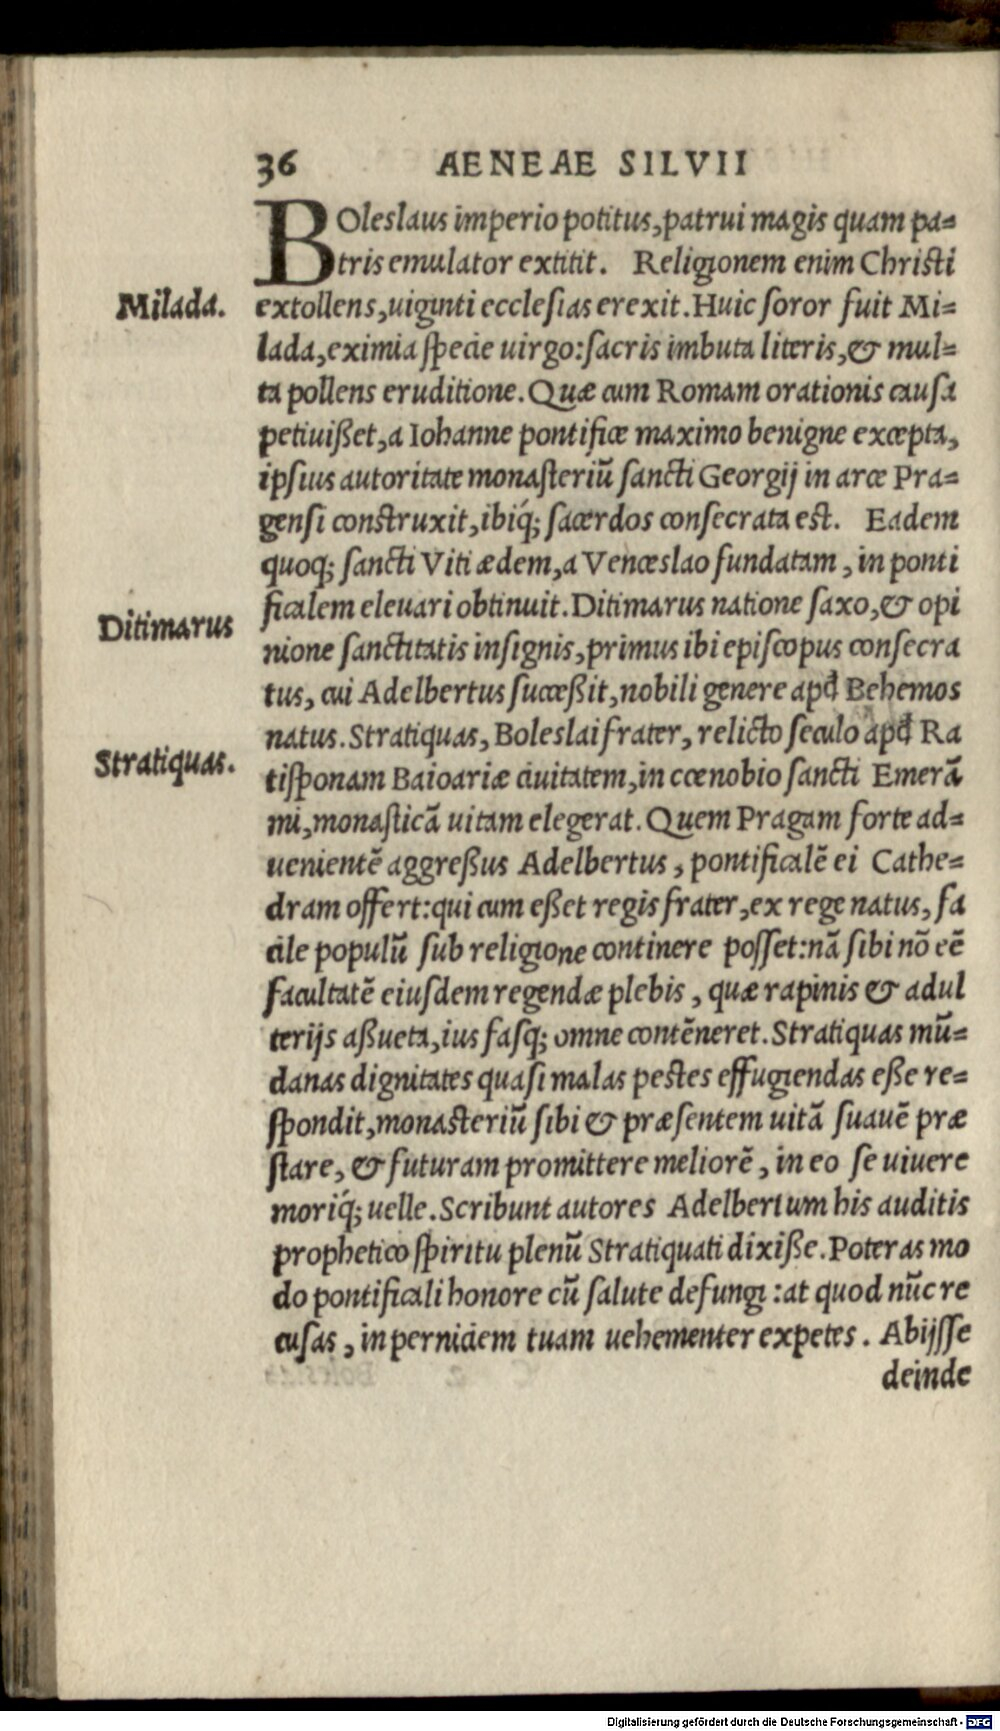 36 AENEAE SILVII
BOleslaus imperio potitus, patrui magis quam pa=
tris emulator extitit. Religionem enim Christi
Milada.
extollens, uiginti ecclesias erexit. Huic soror fuit Mi=
lada, eximia specie uirgo: sacris imbuta literis, & mul=
ta pollens eruditione. Quæ cum Romam orationis causa
petiuißet, a Iohanne pontifice maximo benigne excepta,
ipsius autoritate monasteriũ sancti Georgij in arce Pra=
gensi construxit, ibiq́; sacerdos consecrata est. Eadem
quoq; sancti Viti ædem, a Venceslao fundatam, in ponti
ficalem eleuari obtinuit. Ditimarus natione saxo, & opi
Ditimarus
nione sanctitatis insignis, primus ibi episcopus consecra
tus, cui Adelbertus succeßit, nobili genere apđ Behemos
natus. Stratiquas, Boleslai frater, relicto seculo apđ Ra
Stratiquas.
tisponam Baioariæ ciuitatem, in cœnobio sancti Emerã
mi, monasticã uitam elegerat. Quem Pragam forte ad=
uenientẽ aggreßus Adelbertus, pontificalẽ ei Cathe=
dram offert: qui cum eßet regis frater, ex rege natus, fa
cile populũ sub religione continere posset: nã sibi nõ eẽ
facultatẽ eiusdem regendæ plebis, quæ rapinis & adul
terijs aßueta, ius fasq; omne contẽneret. Stratiquas mũ=
danas dignitates quasi malas pestes effugiendas eße re=
spondit, monasteriũ sibi & præsentem uitã suauẽ præ
stare, & futuram promittere meliorẽ, in eo se uiuere
moriq́; uelle. Scribunt autores Adelbertum his auditis
prophetico spiritu plenũ Stratiquati dixiße. Poteras mo
do pontificali honore cũ salute defungi: at quod nũc re
cusas, in perniciem tuam uehementer expetes. Abijsse
deinde
Digitalisierung gefördert durch die Deutsche Forschungsgemeinschaft - DFG